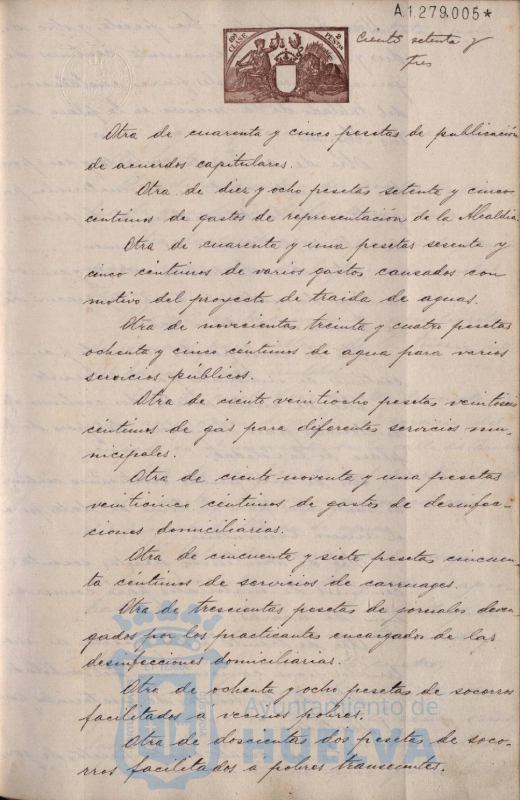 A1.279.005*
10ª CLASE
2 PESETAS
Ciento setenta y
tres
Otra de cuarenta y cinco pesetas de publicación
de acuerdos capitulares.
Otra de diez y ocho pesetas setenta y cinco
céntimos de gastos de representación de la Alcaldía
Otra de cuarenta y una pesetas sesenta y
cinco céntimos de varios gastos causados con
motivo del proyecto de traida de aguas.
Otra de novecientas treinta y cuatro pesetas
ochenta y cinco céntimos de agua para varios
servicios públicos.
Otra de ciento veintiocho pesetas veintiseis
céntimos de gás para diferentes servicios mu-
nicipales.
Otra de ciento noventa y una pesetas
veinticinco céntimos de gastos de desinfec-
ciones domiciliarias.
Otra de cincuenta y siete pesetas cincuen-
ta céntimos de servicios de carruages.
Otra de trescientas pesetas de jornales deven-
gados por los practicantes encargados de las
desinfecciones domiciliarias.
Otra de ochenta y ocho pesetas de socorros
facilitados a vecinos pobres.
Otra de doscientas dos pesetas de soco-
rros facilitados a pobres transeuntes.
Ayuntamiento de
HUELVA